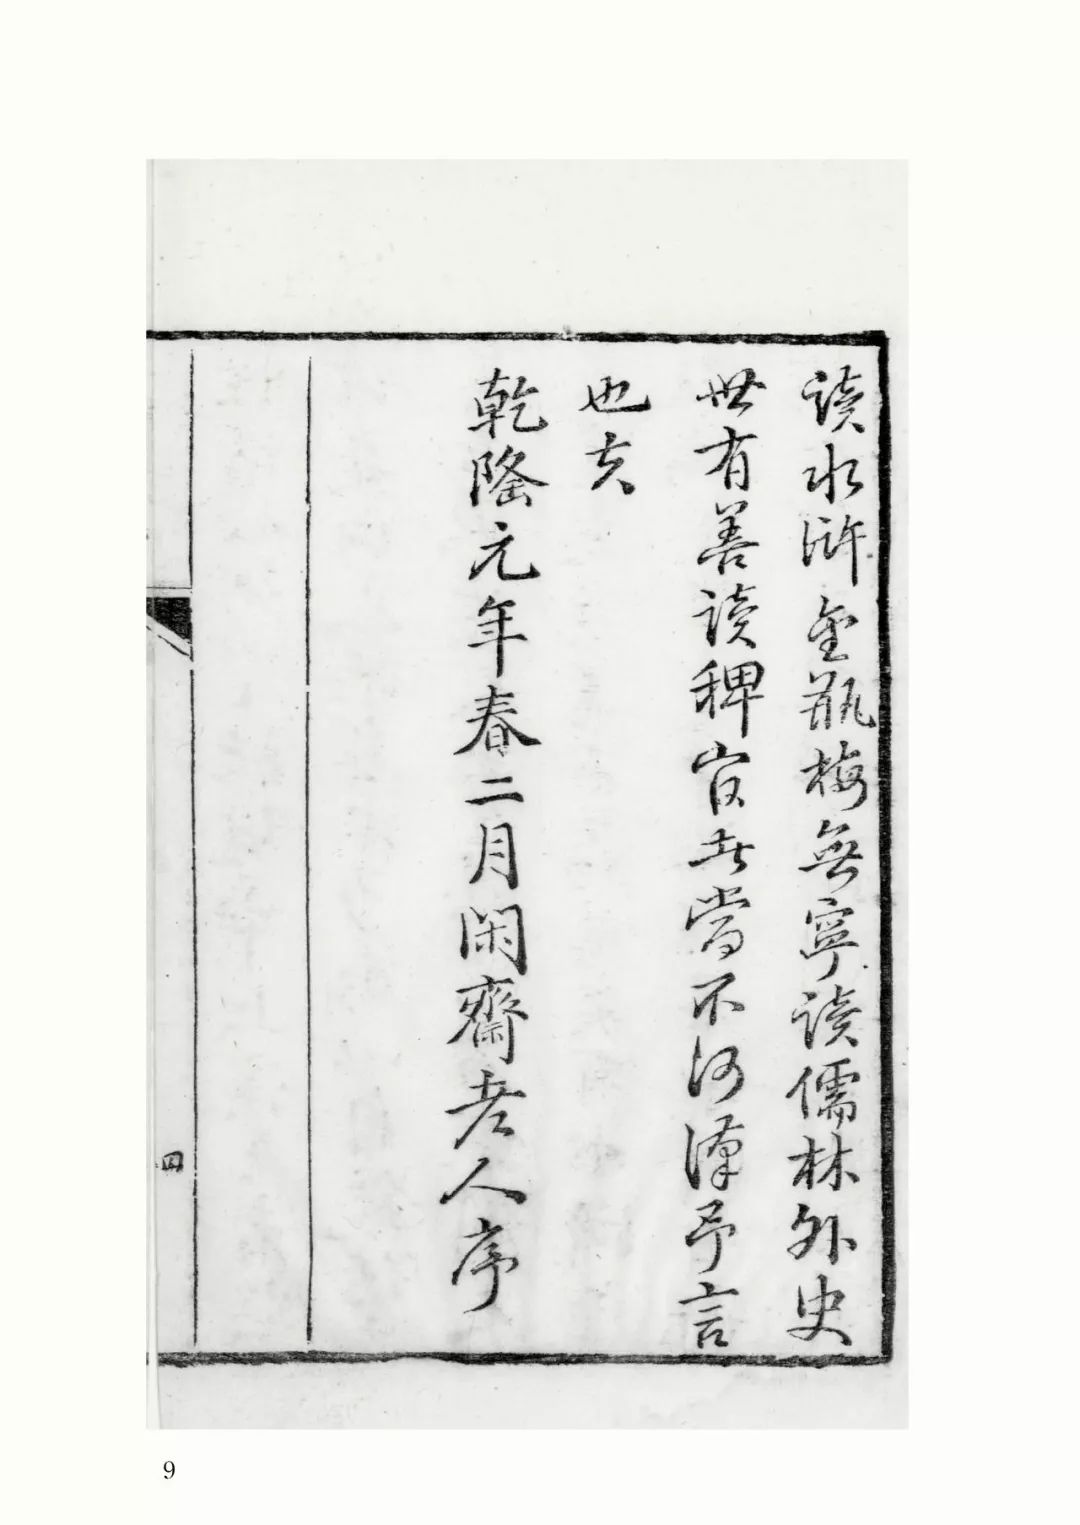 读水滸金瓶梅無寧读儒林外史
世有善读稗官者當不河漢予言
也夫
乾隆元年春二月閑齋老人序
四
9